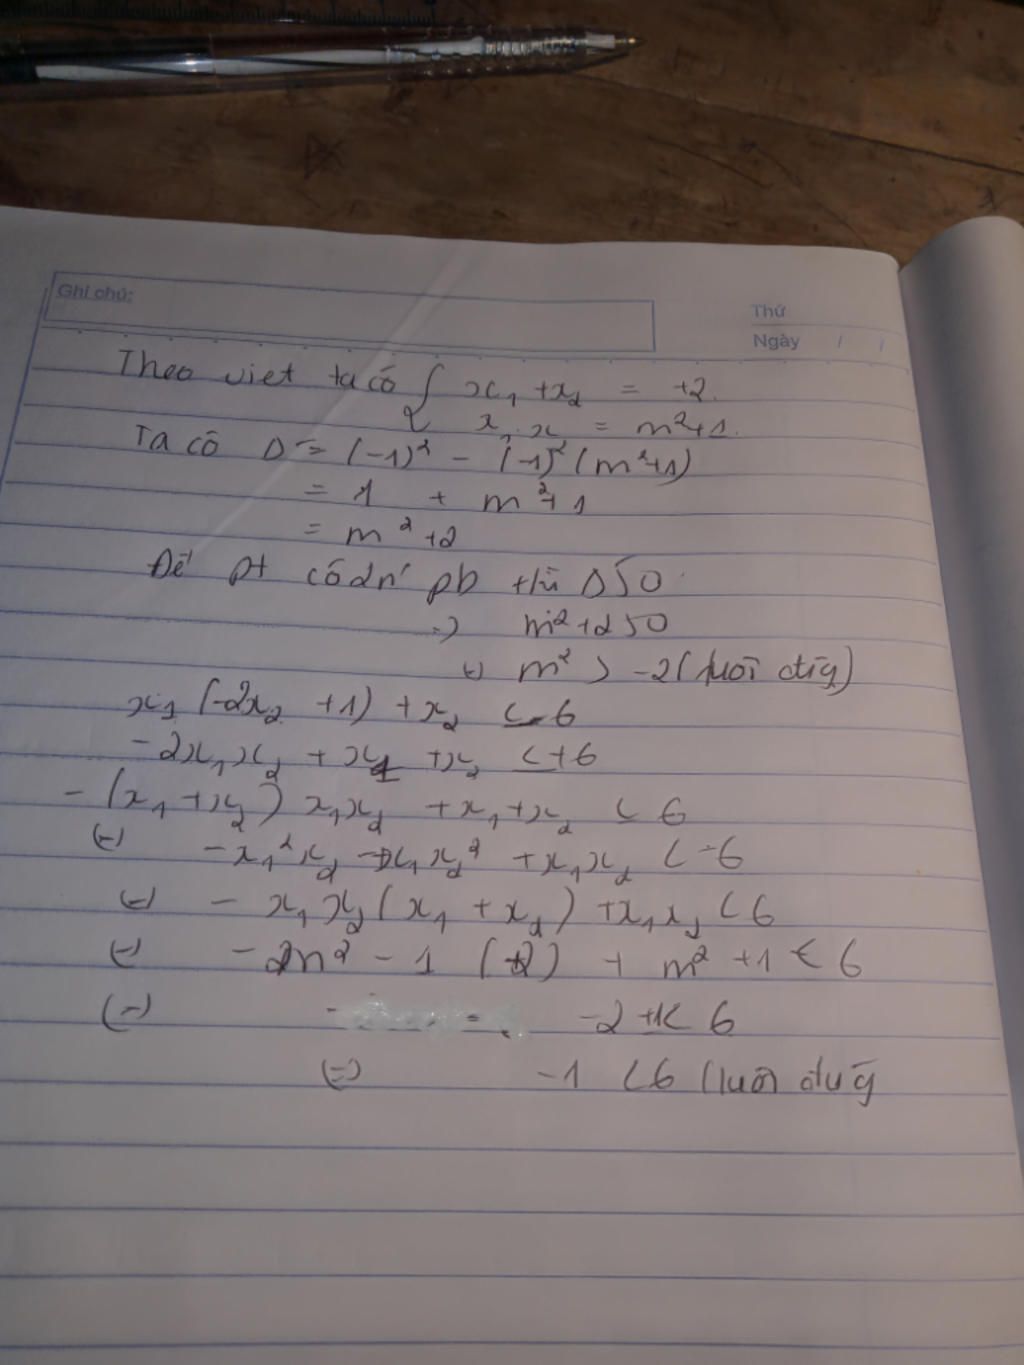 Ghi chú:
Thứ
Ngày / /
Theo viet ta có { x₁ + x₂ = +2.
x₁.x = m²+1.
Ta có Δ' = (-1)² - (-1)² (m²+1)
= 1 + m²+1
= m² +2
Để pt có 2n' pb thì Δ>0
=> m²+2>0
(=) m² > -2 (luôn đúg)
x₁ (-2x₂ +1) + x₂ < 6
-2x₁x₂ + x₁ +x₂ < +6
- (x₁ +x₂) x₁x₂ + x₁ + x₂ < 6
(=) -x₁²x₂ - x₁x₂² + x₁x₂ < -6
(=) - x₁x₂ (x₁ + x₂) + x₁x₂ < 6
(=) - 2m² - 1 (+2) + m² +1 < 6
(=) -2 +1< 6
(=) -1 <6 (luôn đug